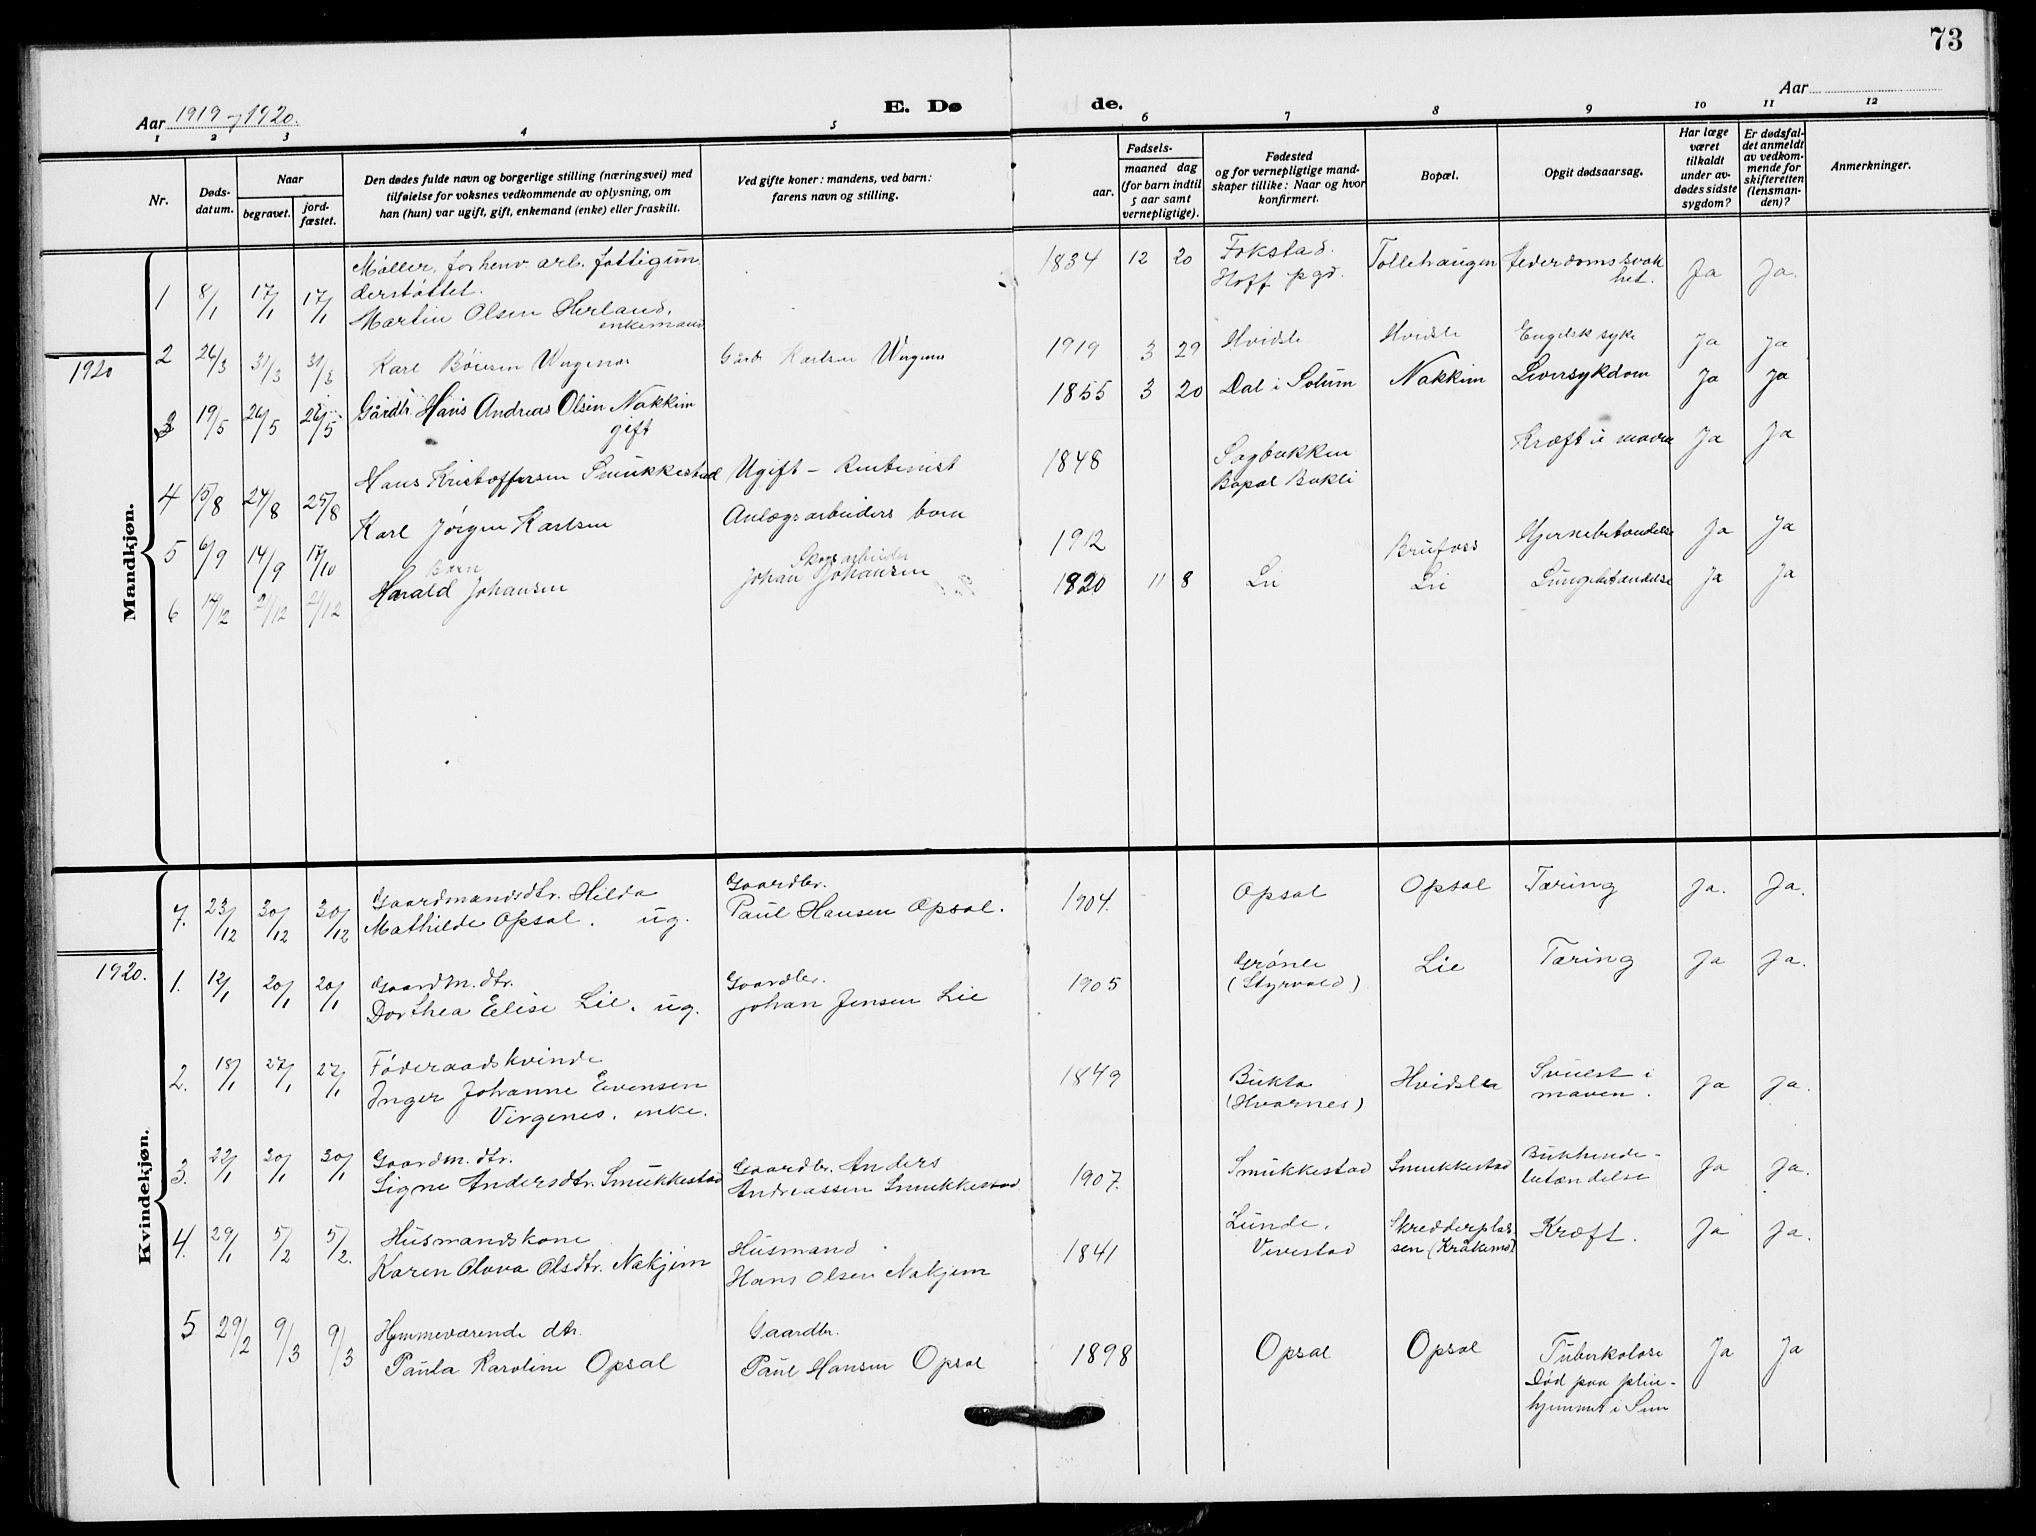 73
Aar 1919-1920.
E. Dø de.
Aar
1 2 3 4 5 6 7 8 9 10 11 12
Nr.
Døds-
datum.
Naar
begravet.
jord-
fæstet.
Den dødes fulde navn og borgerlige stilling (næringsvei) med
tilføielse for voksnes vedkommende av oplysning, om
han (hun) var ugift, gift, enkemand (enke) eller fraskilt.
Ved gifte koner: mandens, ved barn:
farens navn og stilling.
Fødsels-
aar.
maaned dag
(for barn indtil
5 aar samt
vernepligtige).
Fødested
og for vernepligtige mand-
skaper tillike: Naar og hvor
konfirmert.
Bopæl.
Opgit dødsaarsag.
Har læge
været
tilkaldt
under av-
dødes sidste
sygdom?
Er dødsfal-
det anmeldt
av vedkom-
mende for
skifteretten
(lensman-
den)?
Anmerkninger.
Mandkjøn.
1 8/1 17/1 17/1 Møller, forhenv. arb. fattigun
derstøttet.
Martin Olsen Herland,
enkemand
1834 12 20 Fokstad.
Hoff pgd.
Tollehaugen
Alderdomssvak
het.
Ja Ja.
1920
2 26/3 31/3 31/3 Karl Böiesen Virgenes
Gårdb. Karlsen Virgenes
1919 3 29 Hvidste Hvidste Engelsk syke Ja Ja
3 19/5 26/5 26/5 Gårdbr. Hans Andreas Olsen Nakkim
gift
1855 3 20 Dal i Solum Nakkim Leversykdom Ja Ja
4 15/8 24/8 25/8 Hans Kristoffersen Smukkestad Ugift - Rentenist
1848 Sagbakken
Bopæl Bakli
Kræft i maven Ja Ja
5 6/9 14/9 17/10 Karl Jörgen Karlsen Anlægsarbeiders barn
1912 Brufoss Hjernebetændelse Ja Ja
6 14/12 21/12 21/12 Barn
Harald Johansen
Skogsarbeider
Johan Johansen
1820 11 8 Lie Lie Lungebetændelse Ja Ja
Kvindekjøn.
7. 23/12 30/12 30/12 Gaardmandsdtr. Hilda
Mathilde Opsal. ug.
Gaardbr.
Paul Hansen Opsal.
1904. Opsal Opsal Tæring Ja. Ja.
1920.
1. 12/1 20/1 20/1 Gaardm.dtr.
Dorthea Elise Lie. ug.
Gaardbr.
Johan Jensen Lie
1905 Grønli
(Styrvold)
Lie Tæring Ja Ja.
2. 18/1 27/1 27/1 Føderaadskvinde
Inger Johanne Evensen
Virgenes. enke.
1849 Bukta
(Hvarnes)
Hvidste Svulst i
maven.
Ja Ja.
3. 22/1 30/1 30/1 Gaardm.dtr.
Signe Andersdtr. Smukkestad
Gaardbr. Anders
Andreassen Smukkestad
1907. Smukkestad Smukkestad Bukhinde-
betændelse
Ja Ja.
4. 29/1 5/2 5/2. Husmandskone
Karen Olava Olsdtr. Nakjem
Husmand
Hans Olsen Nakjem
1841 Lunde,
Vivestad
Skredderplad-
sen (Kråkemo)
Kræft. Ja Ja.
5 29/2 9/3 9/3 Hjemmeværende dtr.
Paula Karoline Opsal
Gaardbr.
Paul Hansen Opsal
1898 Opsal Opsal Tuberkolose
Død paa plie-
hjemmet i
Ja Ja